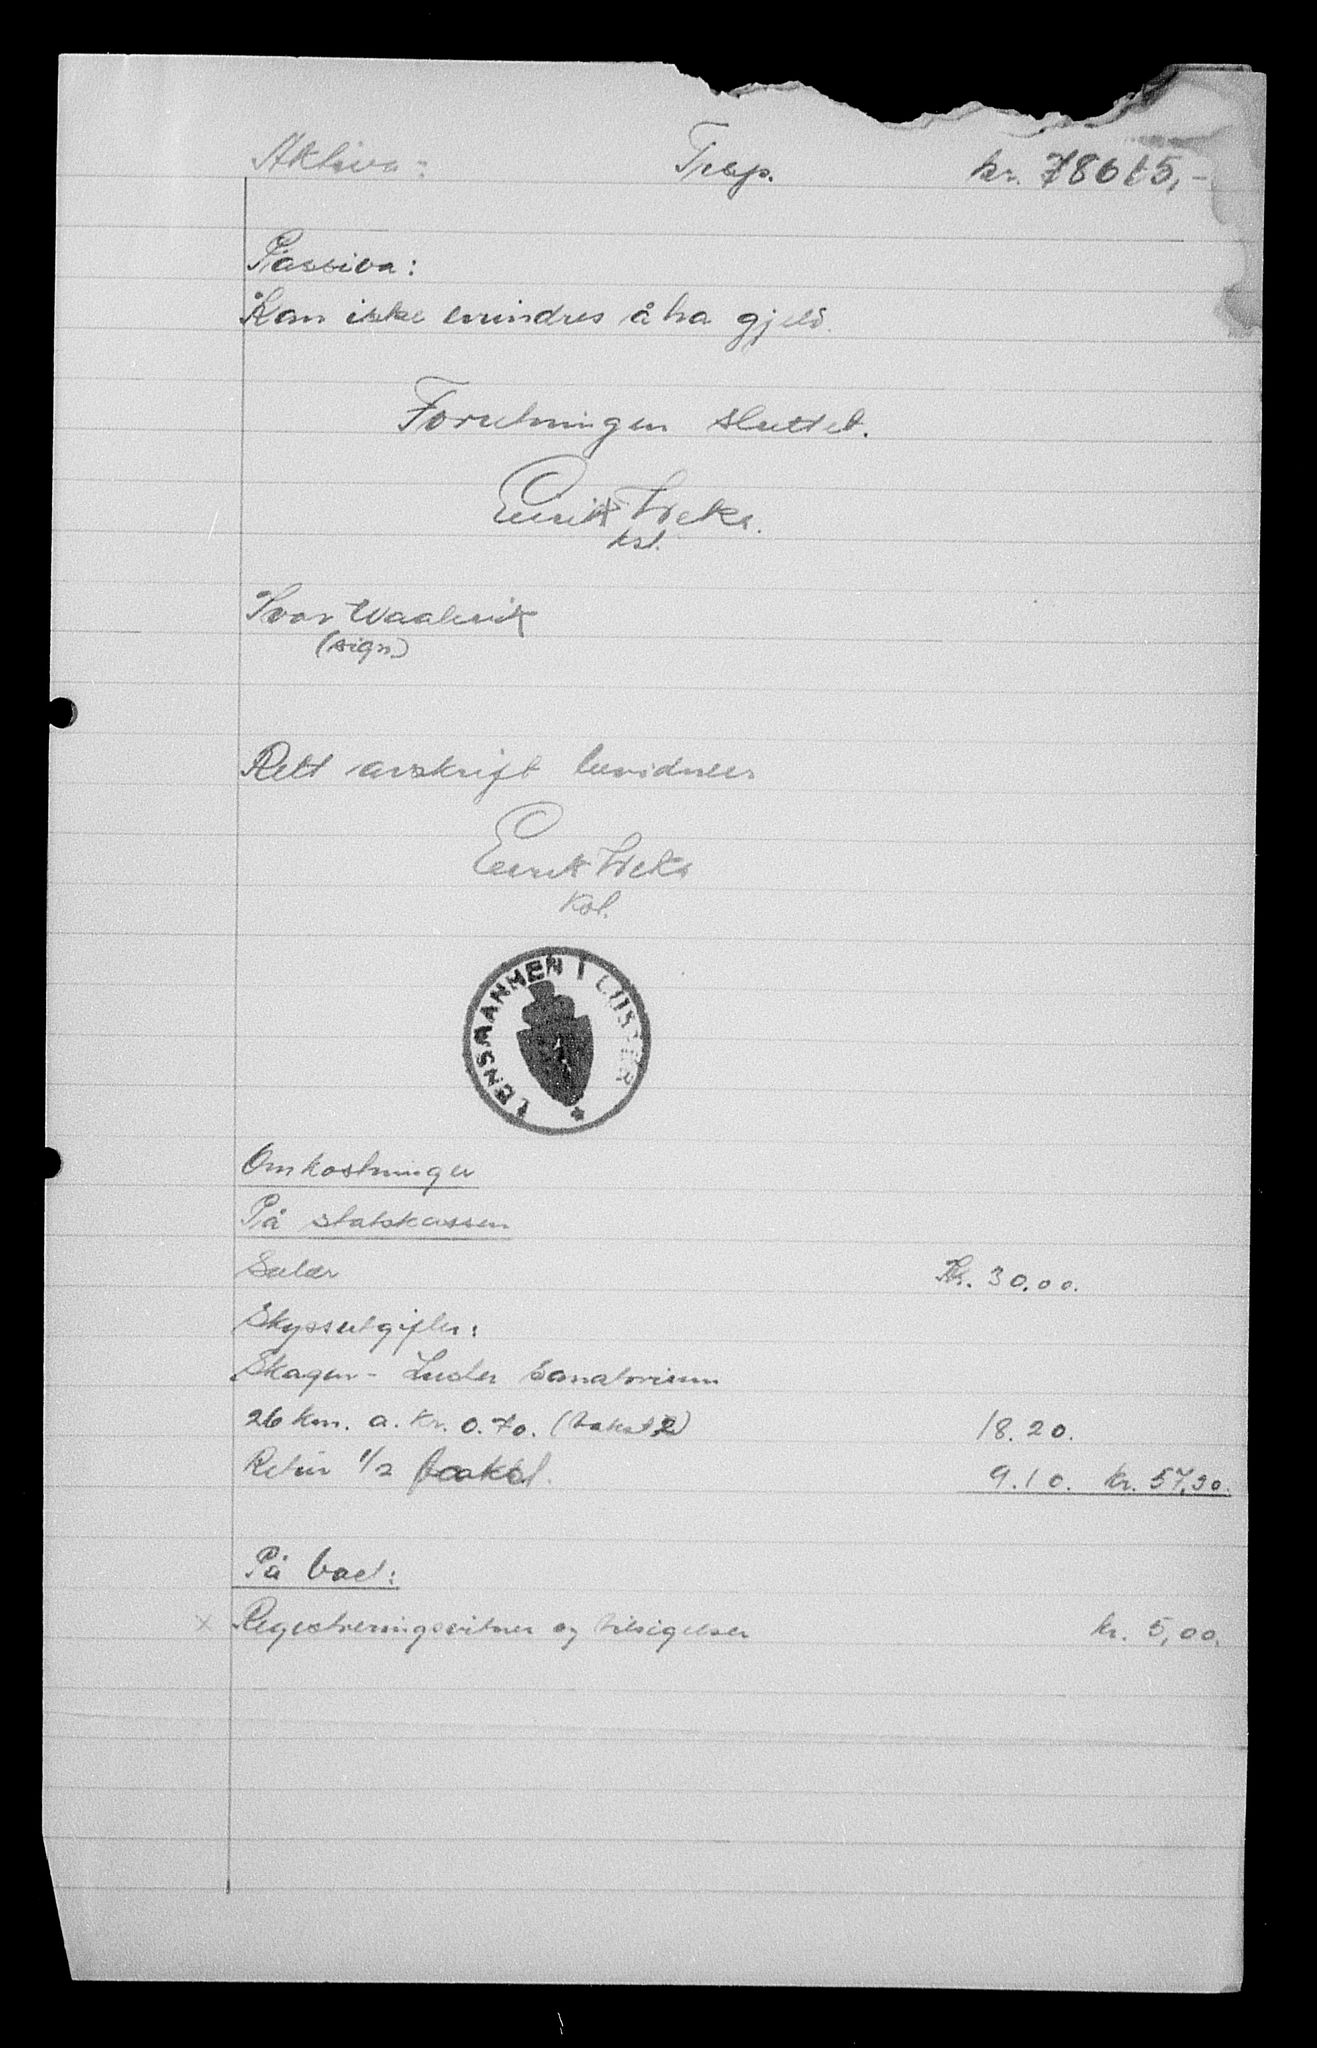 Aktiva: Trsp. kr. 78615,-
Passiva:
Kan ikke erindres å ha gjeld.
Forretningen sluttet.
Eirik
ksl.
Ivar Waalevik
(sign)
Rett avskrift bevidnes
Eirik
Ksl.
LENSMANNEN I LUSTER
Omkostninger
På statskassen
Salær Kr. 30,00.
Skyssutgifter:
Skagen - Luster Sanatorium
26 km. a. kr. 0.70. (takst 2) 18.20.
Retur 1/2 takst. 9.10. kr. 57,30.
På boet:
x Registreringsvitner og tilsigelser kr. 5,00.